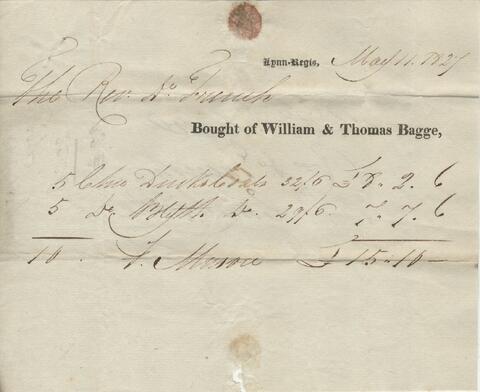 Lynn-Regis, May 11. 1827
The Rev. Dr French
Bought of William & Thomas Bagge,
5 Coals 32/6 £8. 2. 6
5 Do Blyth Do. 29/6 7. 7. 6
10. £15-10-